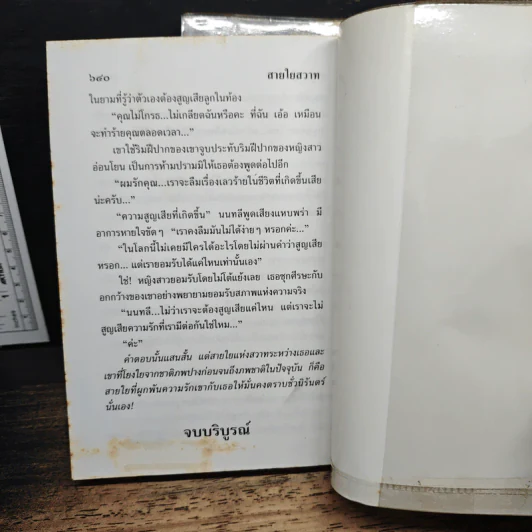 ๖๙๐ สายใยสวาท
ในยามที่รู้ว่าตัวเองต้องสูญเสียลูกในท้อง
“คุณไม่โกรธ...ไม่เกลียดฉันหรือคะ ที่ฉัน เอ้อ เหมือน
จะทำร้ายคุณตลอดเวลา...”
เขาใช้ริมฝีปากของเขาจูบประทับริมฝีปากของหญิงสาว
อ่อนโยน เป็นการห้ามปรามมิให้เธอต้องพูดต่อไปอีก
“ผมรักคุณ...เราจะลืมเรื่องเลวร้ายในชีวิตที่เกิดขึ้นเสีย
นะครับ...”
“ความสูญเสียที่เกิดขึ้น” นนทลีพูดเสียงแหบพร่า มี
อาการหายใจขัดๆ “เราคงลืมมันไม่ได้ง่ายๆ หรอกค่ะ...”
“ในโลกนี้ไม่เคยมีใครได้อะไรโดยไม่ผ่านคำว่าสูญเสีย
หรอก... แต่เรายอมรับได้แค่ไหนเท่านั้นเอง”
ใช่! หญิงสาวยอมรับโดยไม่โต้แย้งเลย เธอซุกศีรษะกับ
อกกว้างของเขาอย่างพยายามยอมรับสภาพแห่งความจริง
“นนทลี...ไม่ว่าเราจะต้องสูญเสียแค่ไหน แต่เราจะไม่
สูญเสียความรักที่เรามีต่อกันใช่ไหม...”
“ค่ะ”
คำตอบนั้นแสนสั้น แต่สายใยแห่งสวาทระหว่างเธอและ
เขาที่โยงใยจากชาติภพปางก่อนจนถึงภพชาติในปัจจุบัน ก็คือ
สายใยที่ผูกพันความรักเขากับเธอให้มั่นคงตราบชั่วนิรันดร์
นั่นเอง!
จบบริบูรณ์